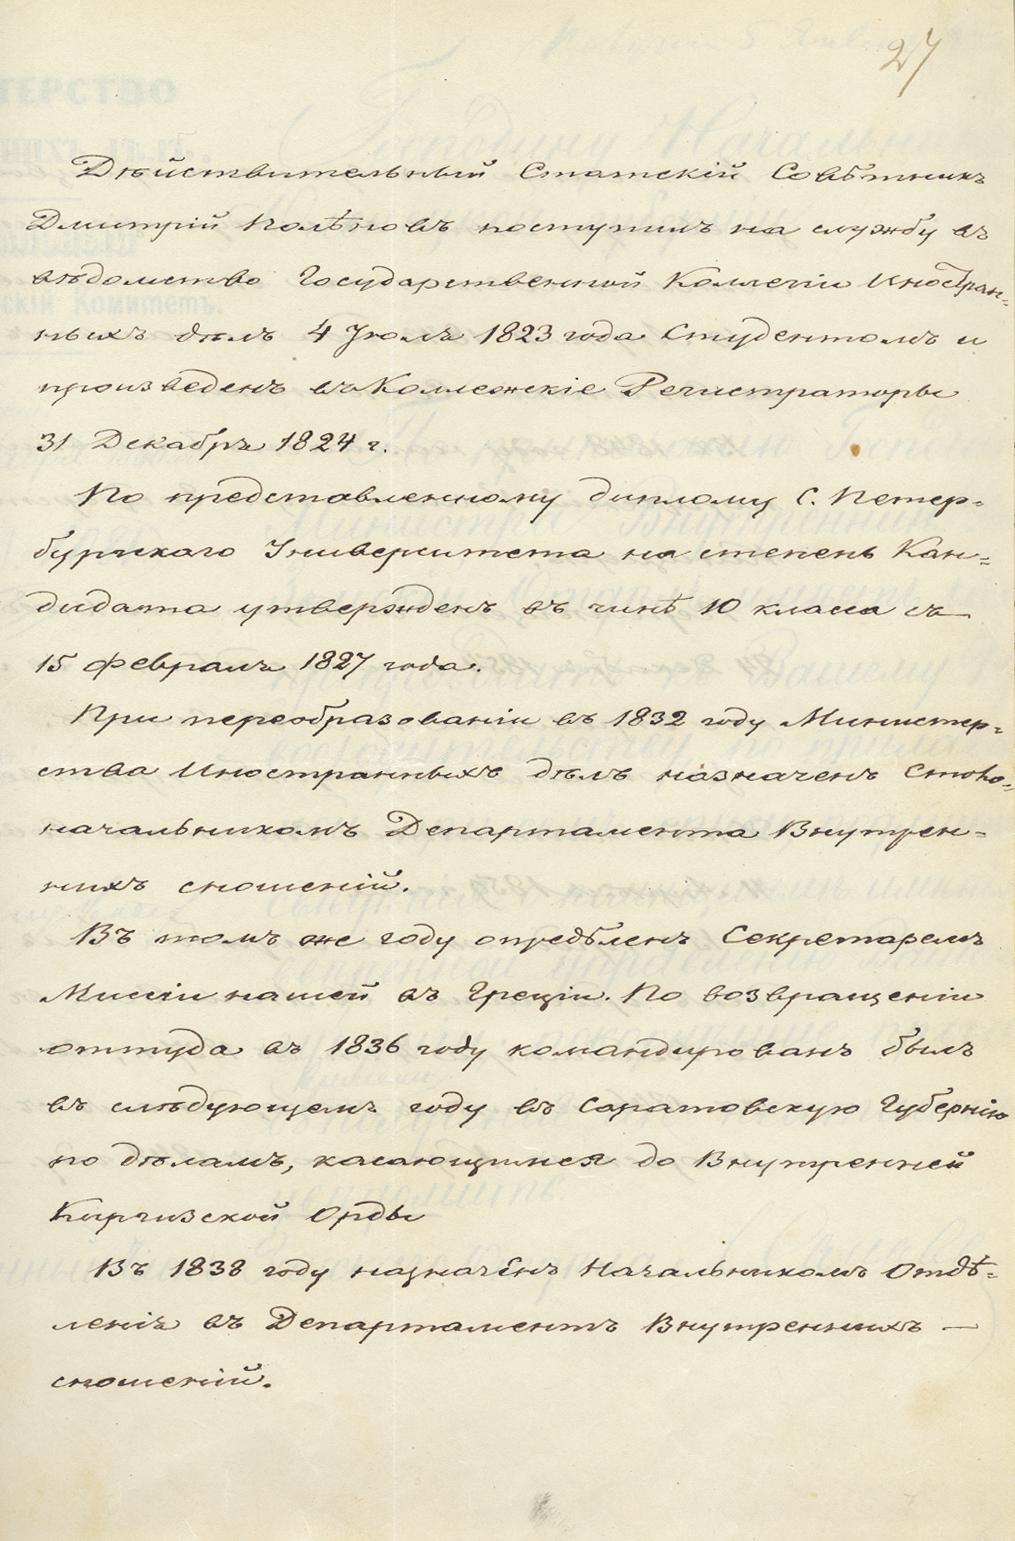 27
Дѣйствительный Статскій Совѣтникъ
Дмитрій Полѣновъ поступилъ на службу въ
вѣдомство Государственной Коллегіи Иностран=
ныхъ дѣлъ 4 Іюля 1823 года Студентомъ и
произведенъ въ Коллежскіе Регистраторы
31 Декабря 1824 г.
По представленному диплому С. Петер=
бургскаго Университета на степень Кан=
дидата утвержденъ въ чинѣ 10 класса съ
15 февраля 1827 года.
При переобразованіи въ 1832 году Министер=
ства Иностранныхъ дѣлъ назначенъ Столо=
начальникомъ Департамента Внутрен=
нихъ сношеній.
Въ томъ же году опредѣленъ Секретаремъ
Миссіи нашей въ Греціи. По возвращеніи
оттуда въ 1836 году командированъ былъ
въ слѣдующемъ году въ Саратовскую Губернію
по дѣламъ, касающимся до Внутренней
Киргизской Орды
Въ 1838 году назначенъ Начальникомъ Отдѣ=
ленія въ Департаментъ Внутреннихъ —
сношеній.